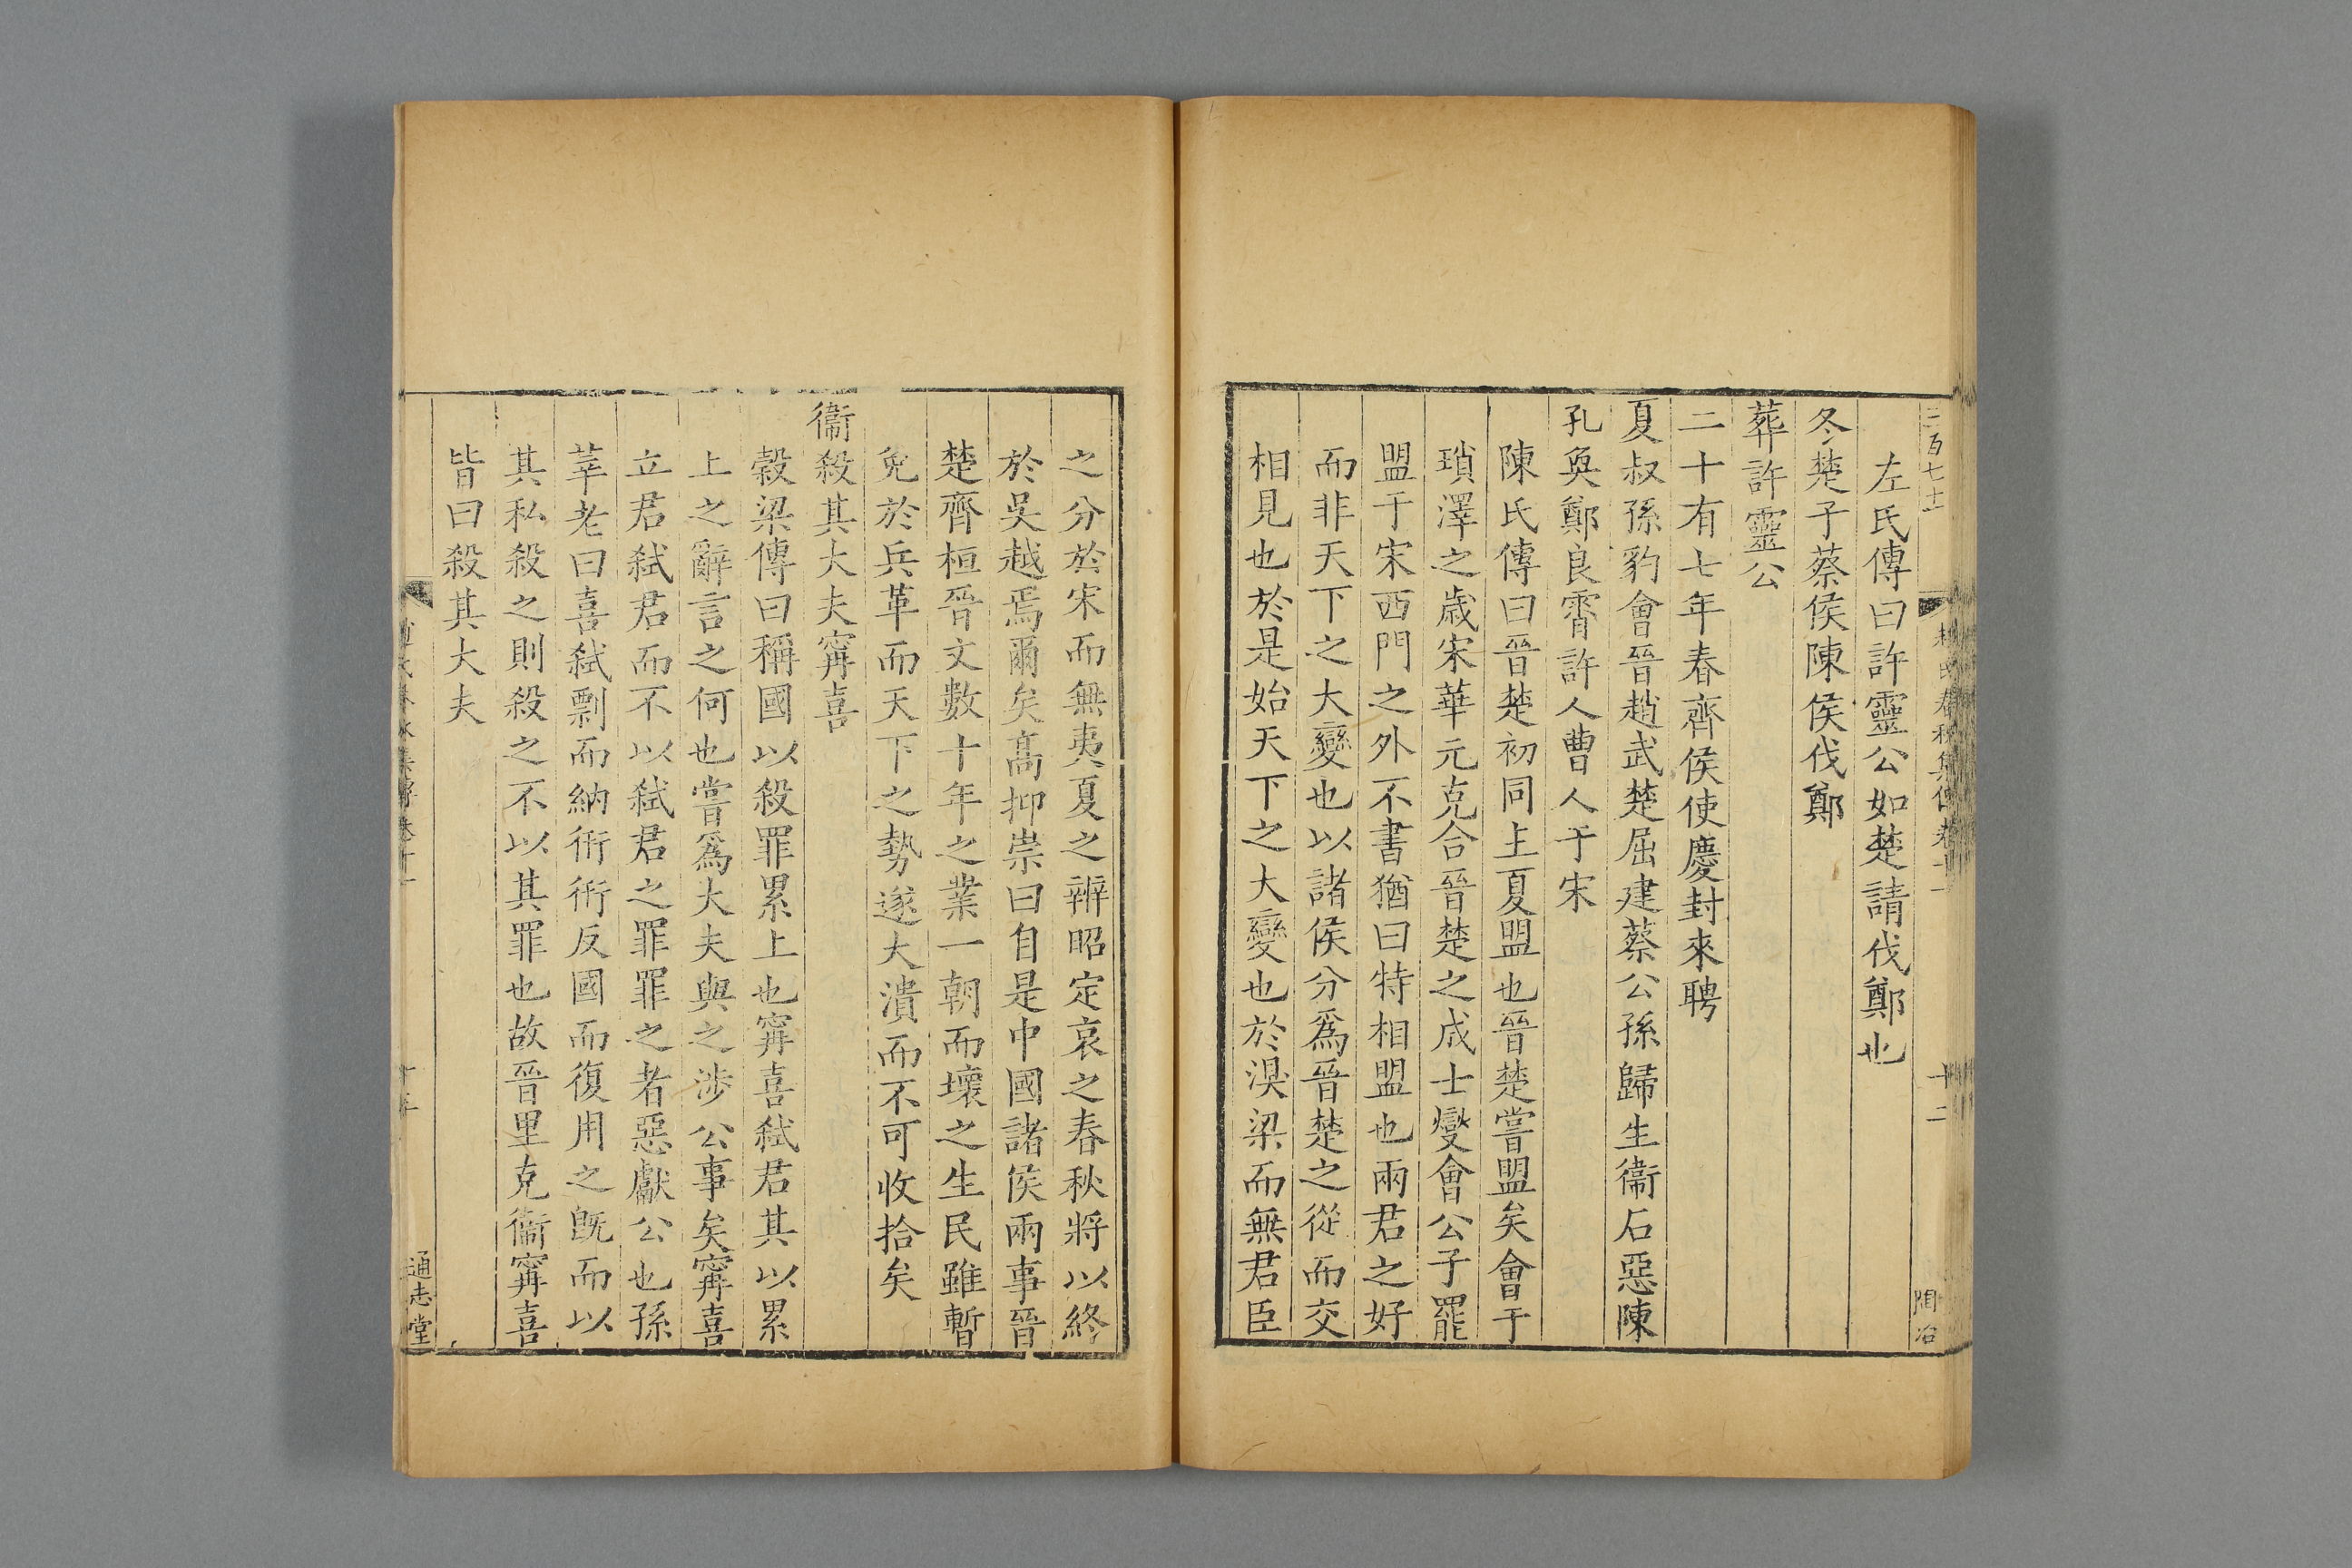 左氏傳曰許靈公如楚請伐鄭也
冬楚子蔡侯陳侯伐鄭
葬許靈公
二十有七年春齊侯使慶封來聘
夏叔孫豹會晉趙武楚屈建蔡公孫歸生衞石惡陳
孔奐鄭良霄許人曹人于宋
陳氏傳曰晉楚初同主夏盟也晉楚嘗盟矣會于
瑣澤之歲宋華元克合晉楚之成士燮會公子罷
盟于宋西門之外不書猶曰特相盟也兩君之好
而非天下之大變也以諸侯分爲晉楚之從而交
相見也於是始天下之大變也於湨梁而無君臣
之分於宋而無夷夏之辨昭定哀之春秋將以終
於吳越焉爾矣髙抑崇曰自是中國諸侯兩事晉
楚齊桓晉文數十年之業一朝而壞之生民雖暫
免於兵革而天下之勢遂大潰而不可收拾矣
衞殺其大夫甯喜
穀梁傳曰稱國以殺罪累上也甯喜弑君其以累
上之辭言之何也嘗爲大夫與之涉公事矣甯喜
立君弑君而不以弑君之罪罪之者惡獻公也孫
莘老曰喜弑剽而納衎衎反國而復用之旣而以
其私殺之則殺之不以其罪也故晉里克衞甯喜
皆曰殺其大夫
通志堂